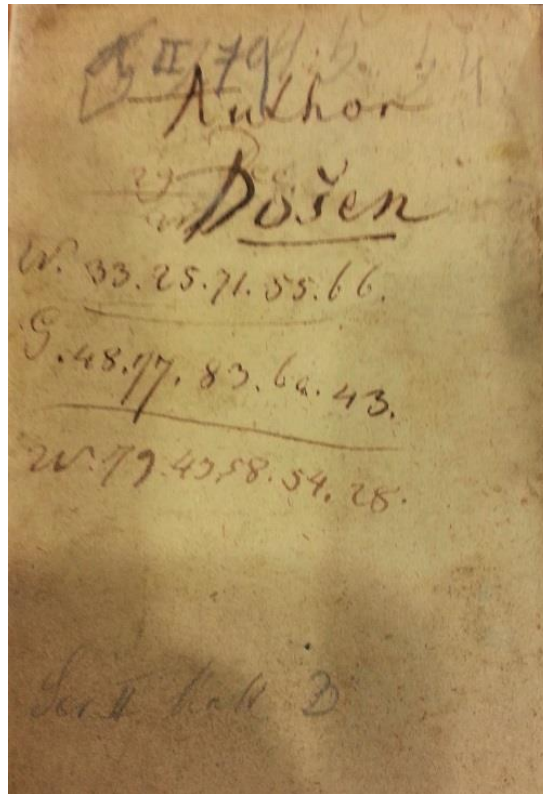 II 79
Author
Došen
W. 33. 25. 71. 55. 66.
G. 48. 77. 83. 60. 43.
W. 79. 43. 58. 54. 28.
Ser II D